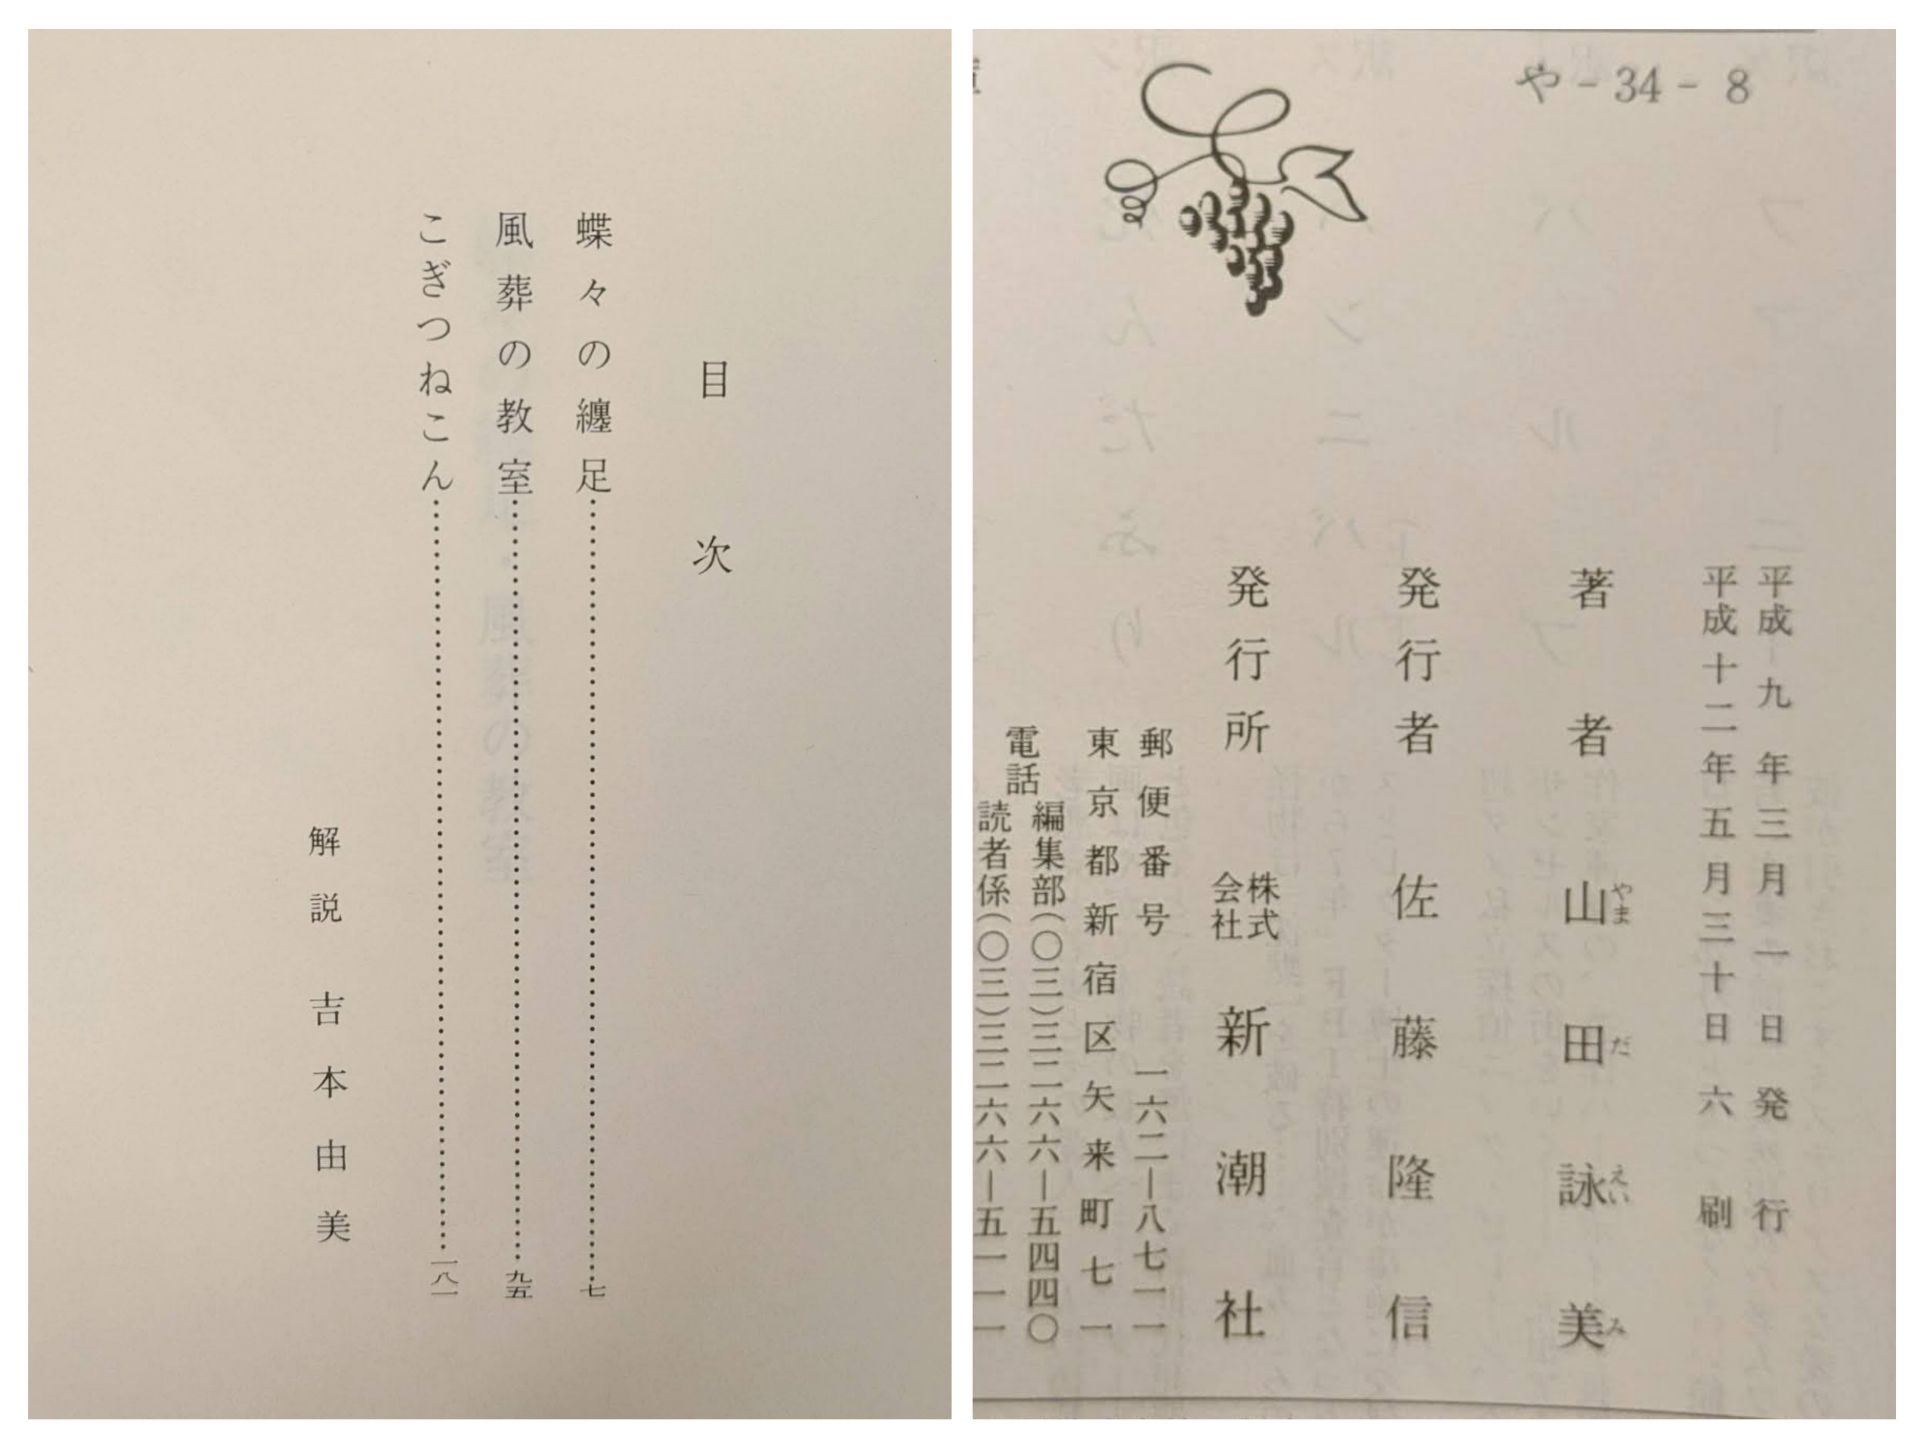 目次
蝶々の纏足……七
風葬の教室……九五
こぎつねこん……一八一
解説 吉本由美
や-34-8
平成九年三月一日発行
平成十二年五月三十日六刷
著者 山田詠美
やまだえいみ
発行者 佐藤隆信
発行所 株式会社 新潮社
郵便番号 一六二―八七一一
東京都新宿区矢来町七一
電話 編集部(〇三)三二六六―五四四〇
読者係(〇三)三二六六―五一一一